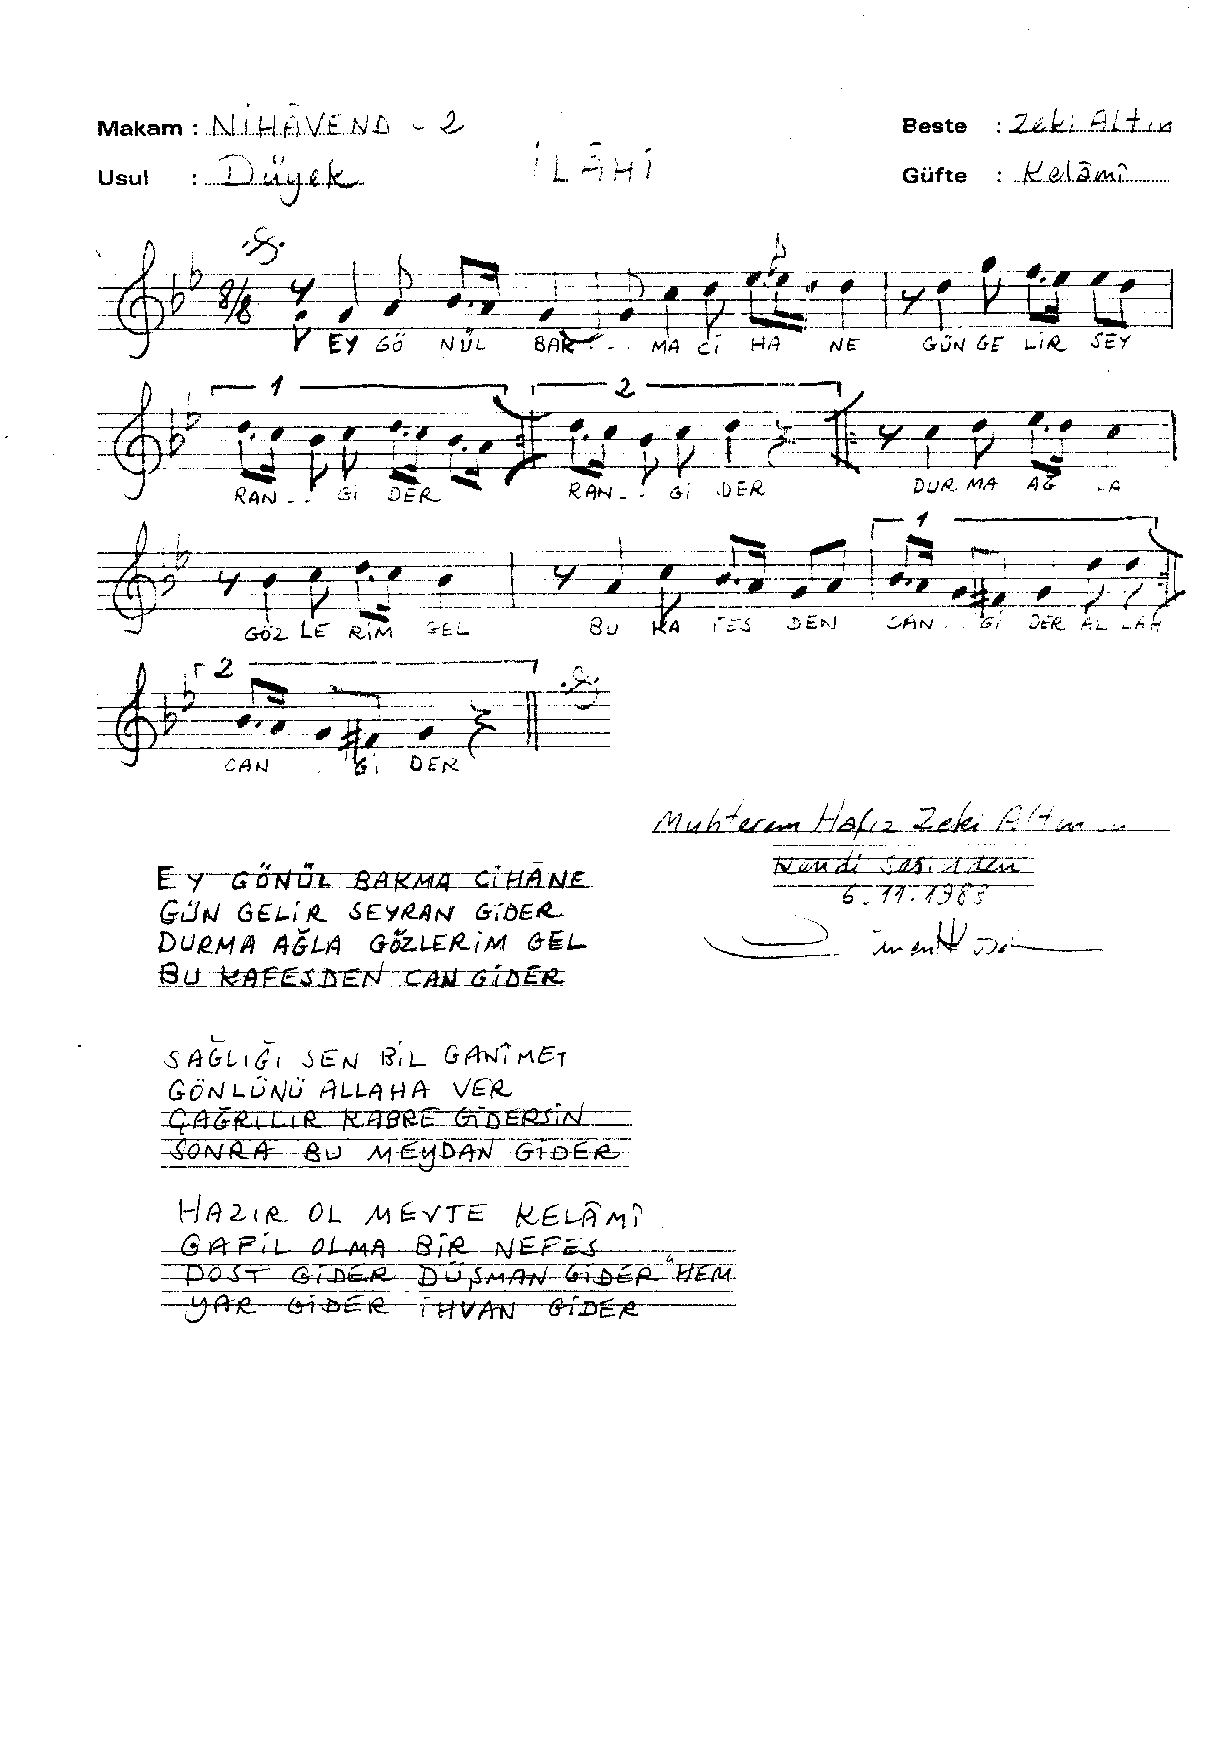 Makam : NİHÂVEND - 2
Beste : Zeki Altın
Usul : Düyek
İLÂHİ
Güfte : Kelâmî
8/8
EY GÖ NÜL BAK . . . MA Cİ HA NE GÜN GE LİR SEY
1 2
RAN . . Gİ DER RAN . . Gİ DER DUR MA AĞ LA
1
GÖZ LE RİM GEL BU KA FES DEN CAN . . Gİ DER AL LAH
2
CAN . Gİ DER
Muhterem Hafız Zeki Altın
Kendi sesinden
6.11.1983
EY GÖNÜL BAKMA CİHÂNE
GÜN GELİR SEYRAN GİDER
DURMA AĞLA GÖZLERİM GEL
BU KAFESDEN CAN GİDER
SAĞLIĞI SEN BİL GANÎMET
GÖNLÜNÜ ALLAHA VER
ÇAĞRILIR KABRE GİDERSİN
SONRA BU MEYDAN GİDER
HAZIR OL MEVTE KELÂMÎ
GAFİL OLMA BİR NEFES
DOST GİDER DÜŞMAN GİDER HEM
YAR GİDER İHVAN GİDER